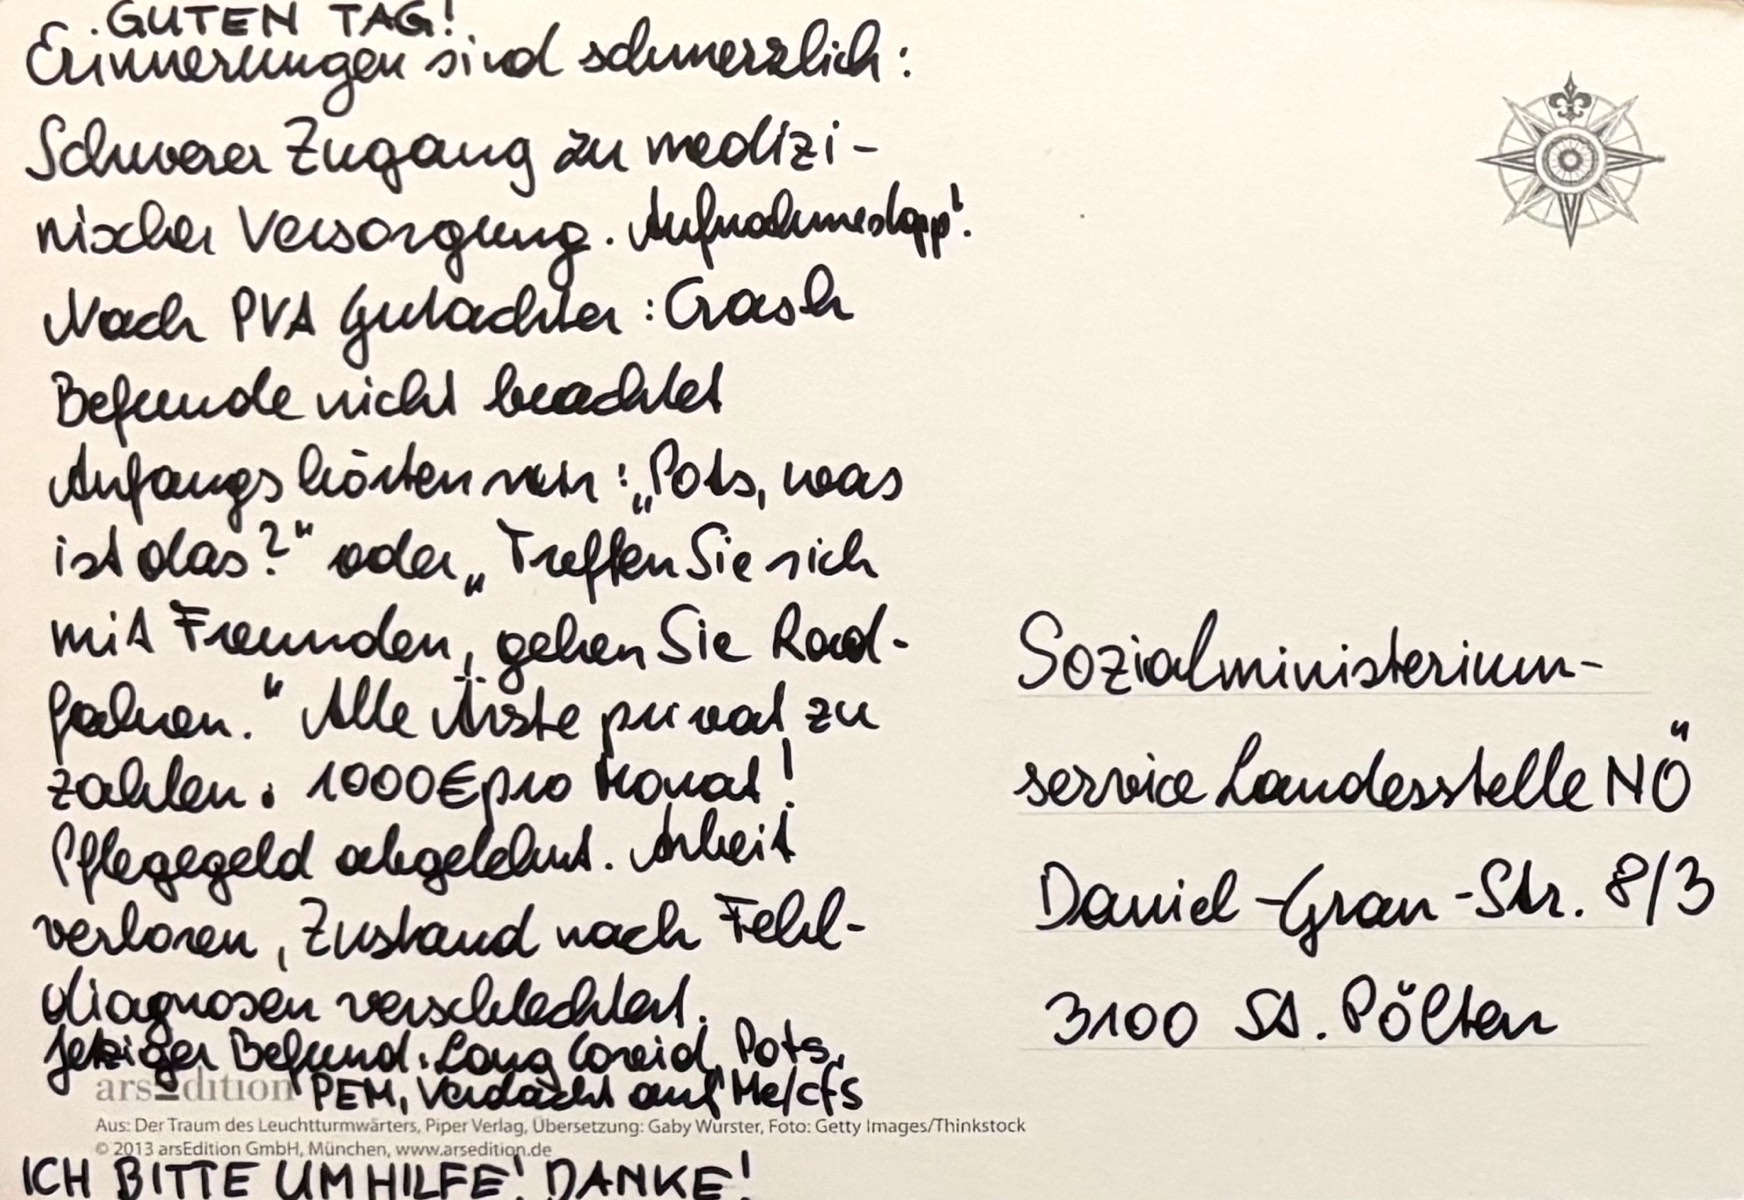 GUTEN TAG!
Erinnerungen sind schmerzlich:
Schwerer Zugang zu medizi-
nischer Versorgung. Aufnahmestopp!
Nach PVA Gutachter: Crash
Befunde nicht beachtet
Anfangs hörten wir: „Pots, was
ist das?“ oder „Treffen Sie sich
mit Freunden, gehen Sie Rad-
fahren.“ Alle Ärzte privat zu
zahlen. 1000€ pro Monat!
Pflegegeld abgelehnt. Arbeit
verloren, Zustand nach Fehl-
diagnosen verschlechtert.
Jetziger Befund: Long Covid, Pots,
PEM, Verdacht auf Me/cfs
arsEdition
Aus: Der Traum des Leuchtturmwärters, Piper Verlag, Übersetzung: Gaby Wurster, Foto: Getty Images/Thinkstock
© 2013 arsEdition GmbH, München, www.arsedition.de
ICH BITTE UM HILFE! DANKE!
Sozialministerium-
service Landesstelle NÖ
Daniel-Gran-Str. 8/3
3100 St. Pölten